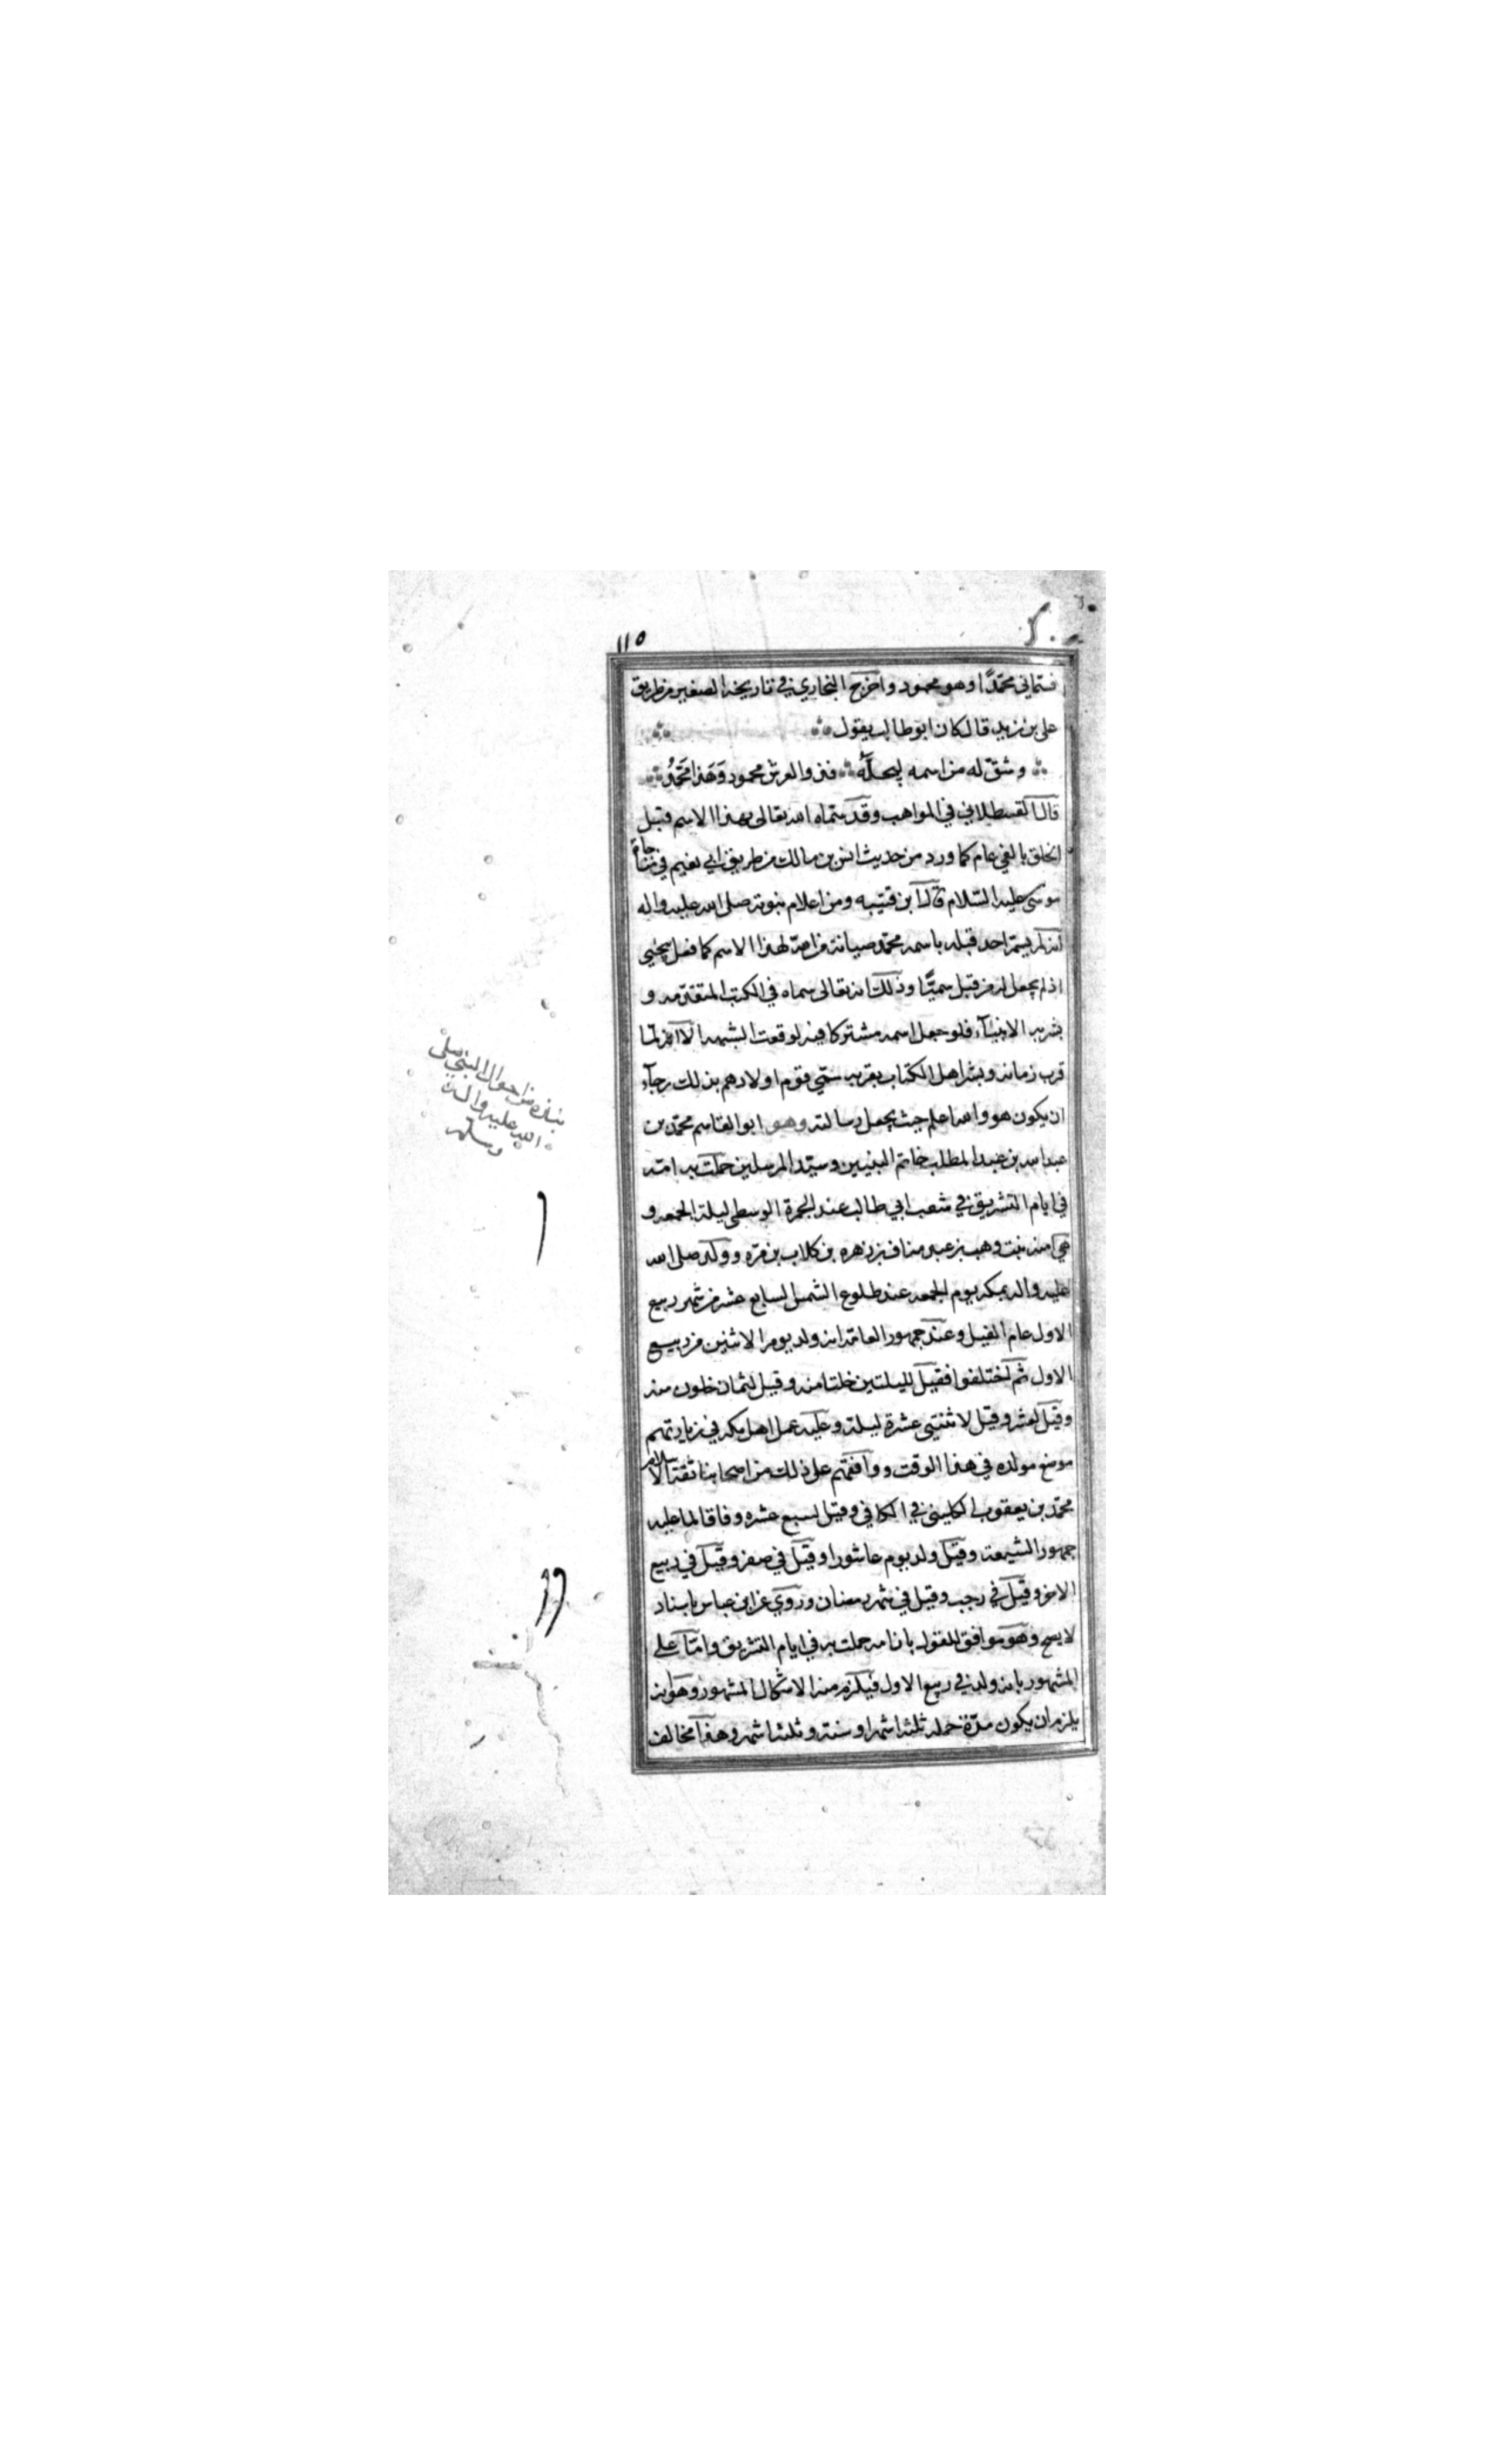 ١١٥
فسماني محمّدًا وهو محمود واخرج البخاري في تاريخه الصغير من طريق
علي بن زيد قال كان ابو طالب يقول
وشقّ له من اسمه ليجلّه فذو العرش محمود وهَذا مُحَمّدُ
قال القسطلاني في المواهب وقد سمّاه الله تعالى بهذا الاسم قبل
الخلق بالفي عام كما ورد من حديث انس بن مالك من طريق ابي نعيم في مناجاة
موسى عليه السّلام قال ابن قتيبه ومن اعلام نبوته صلى الله عليه واله
انه لم يسمّ احد قبله باسمه محمّد صيانة من الله لهذا الاسم كما فعل بيحيى
اذ لم يجعل له من قبل سميًّا وذلك انه تعالى سماه في الكتب المتقدّمه و
بشر به الانبيآء فلو جعل اسمه مشتركا فيه لوقعت الشبهه الا انه لمّا
قرب زمانه وبشر اهل الكتاب بقربه سمّي قوم اولادهم بذلك رجآء
ان يكون هو والله اعلم حيث يجعل رسالته وهو ابو القاسم محمّد بن
عبد الله بن عبد المطلب خاتم النبيين وسيّد المرسلين حملت به امّه
في ايام التشريق في شعب ابي طالب عند الجمرة الوسطى ليلة الجمعه و
هي امنه بنت وهب بن عبد مناف بن زهره بن كلاب بن مرّه وولد صلى الله
عليه واله بمكه يوم الجمعه عند طلوع الشمس السابع عشر من شهر ربيع
الاول عام الفيل وعند جمهور العامّه انه ولد يوم الاثنين من ربيع
الاول ثم اختلفوا فقيل لليلتين خلتا منه وقيل لثمان خلون منه
وقيل لعشر وقيل لاثنتي عشرة ليلة وعليه عمل اهل مكه في زيارتهم
موضع مولده في هذا الوقت ووافقهم على ذلك من اصحابنا ثقة الاسلام
محمّد بن يعقوب الكليني في الكافي وقيل لسبع عشره وفاقا لما عليه
جمهور الشيعة وقيل ولد يوم عاشورا وقيل في صفر وقيل في ربيع
الاخر وقيل في رجب وقيل في شهر رمضان وروي عن ابن عباس باسناد
لا يصح وهو موافق للقول بان امه حملت به في ايام التشريق وامّا على
المشهور بانه ولد في ربيع الاول فيلزم منه الاشكال المشهور وهو انه
يلزم ان يكون مدّة حمله ثلثة اشهر او سنة وثلثة اشهر وهذا مخالف
نبذه من احوال النبي صلى
الله عليه واله
وسلم